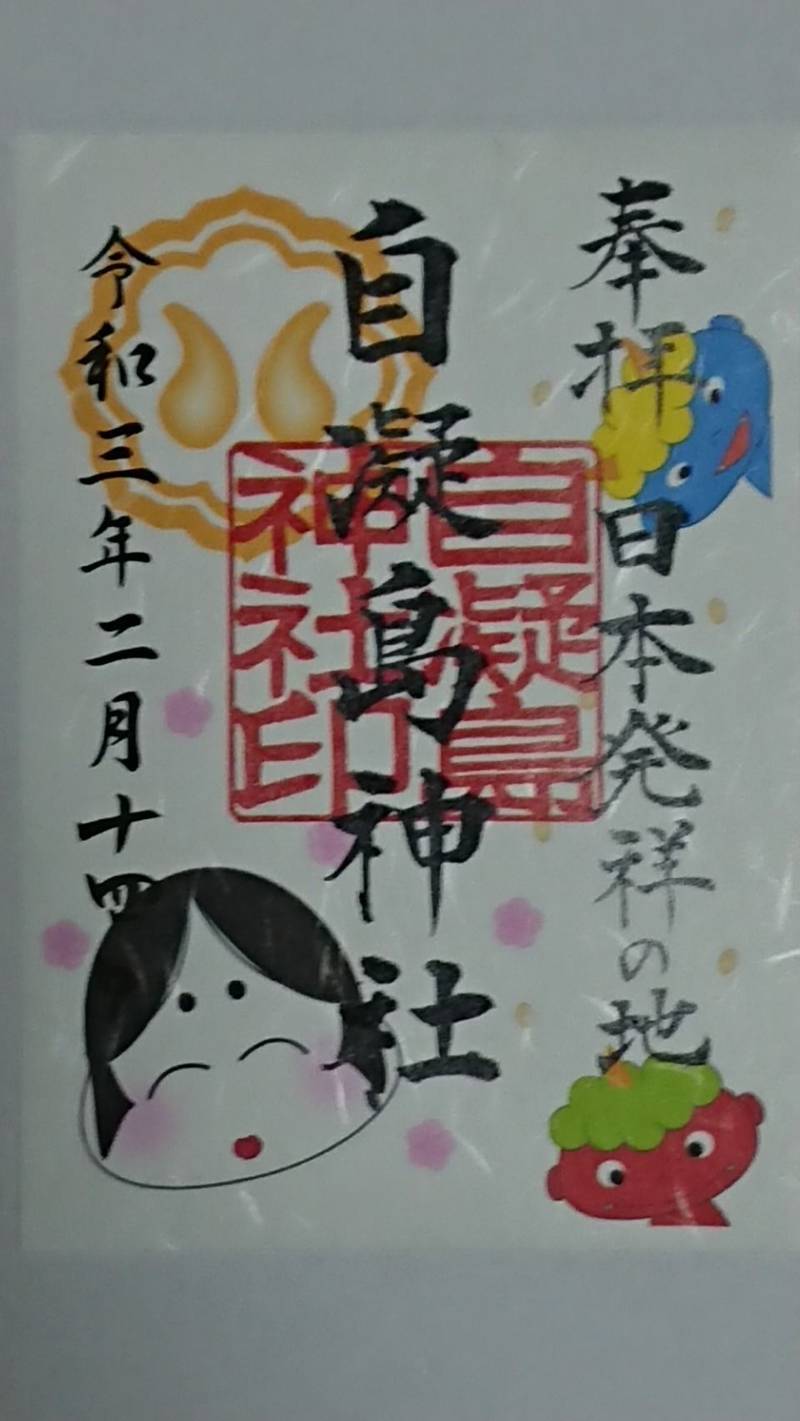 奉拝 日本発祥の地
自凝島神社
自凝島
神社印
令和三年二月十四